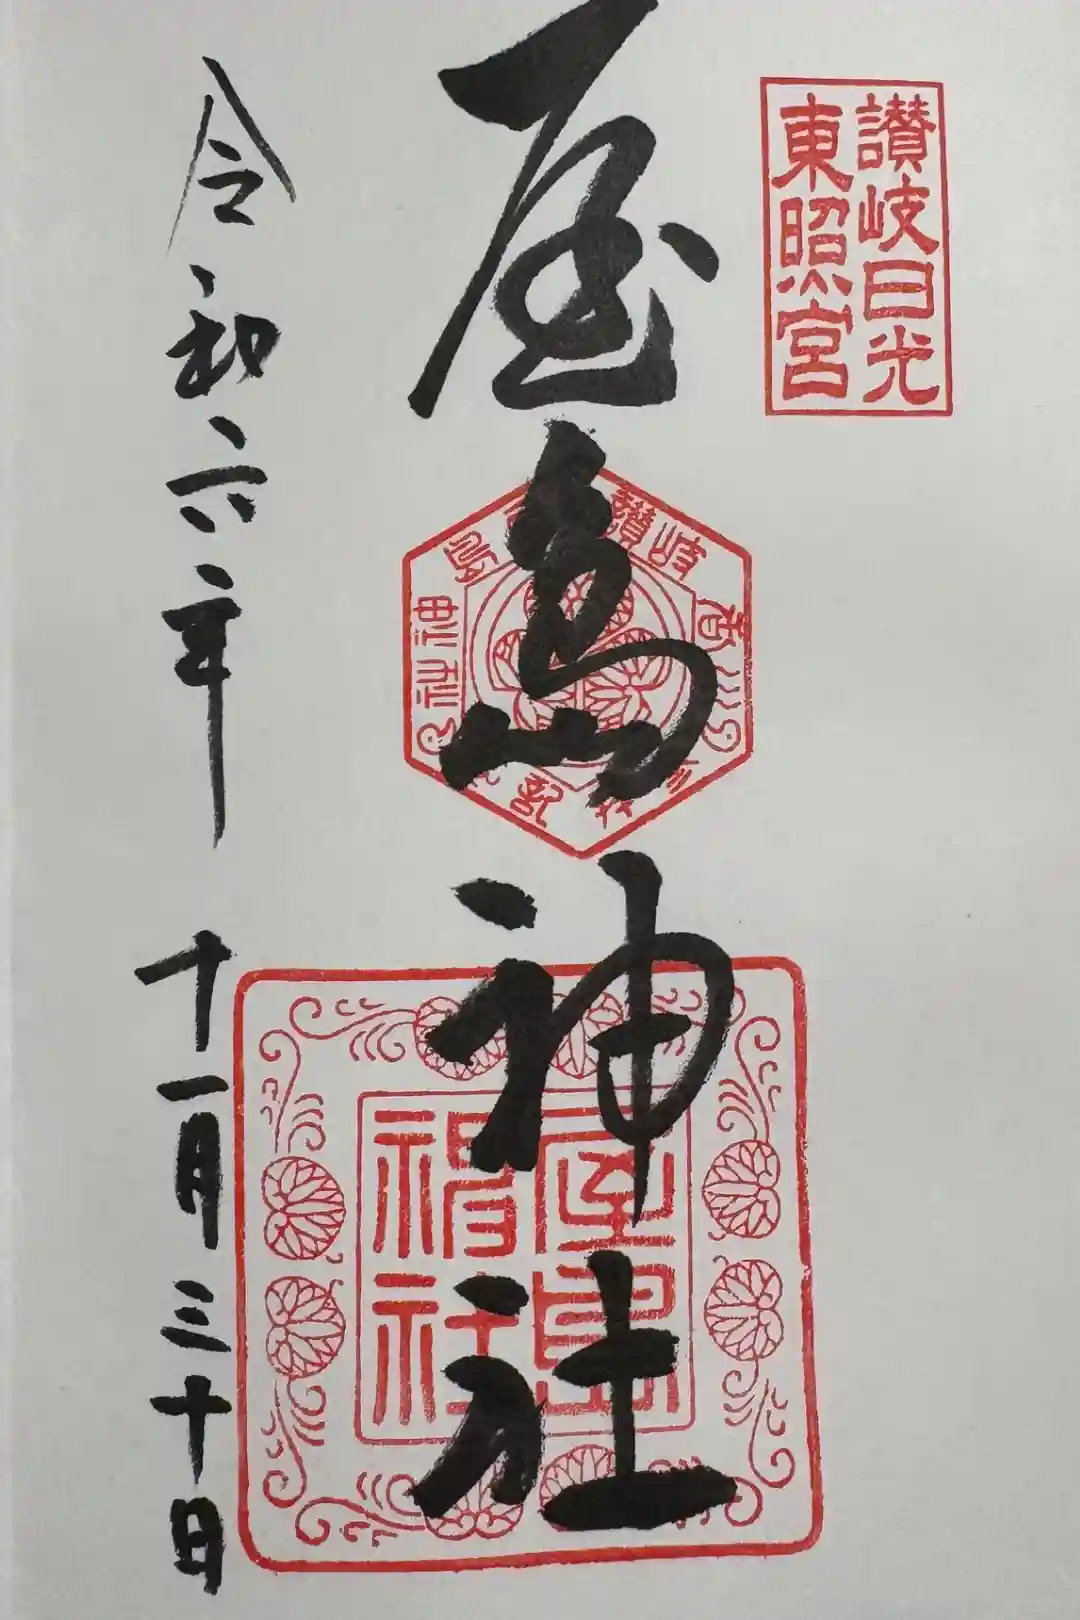 讃岐日光
東照宮
屋島神社
讃岐
神社
屋島
神社
令和六年 十一月三十日